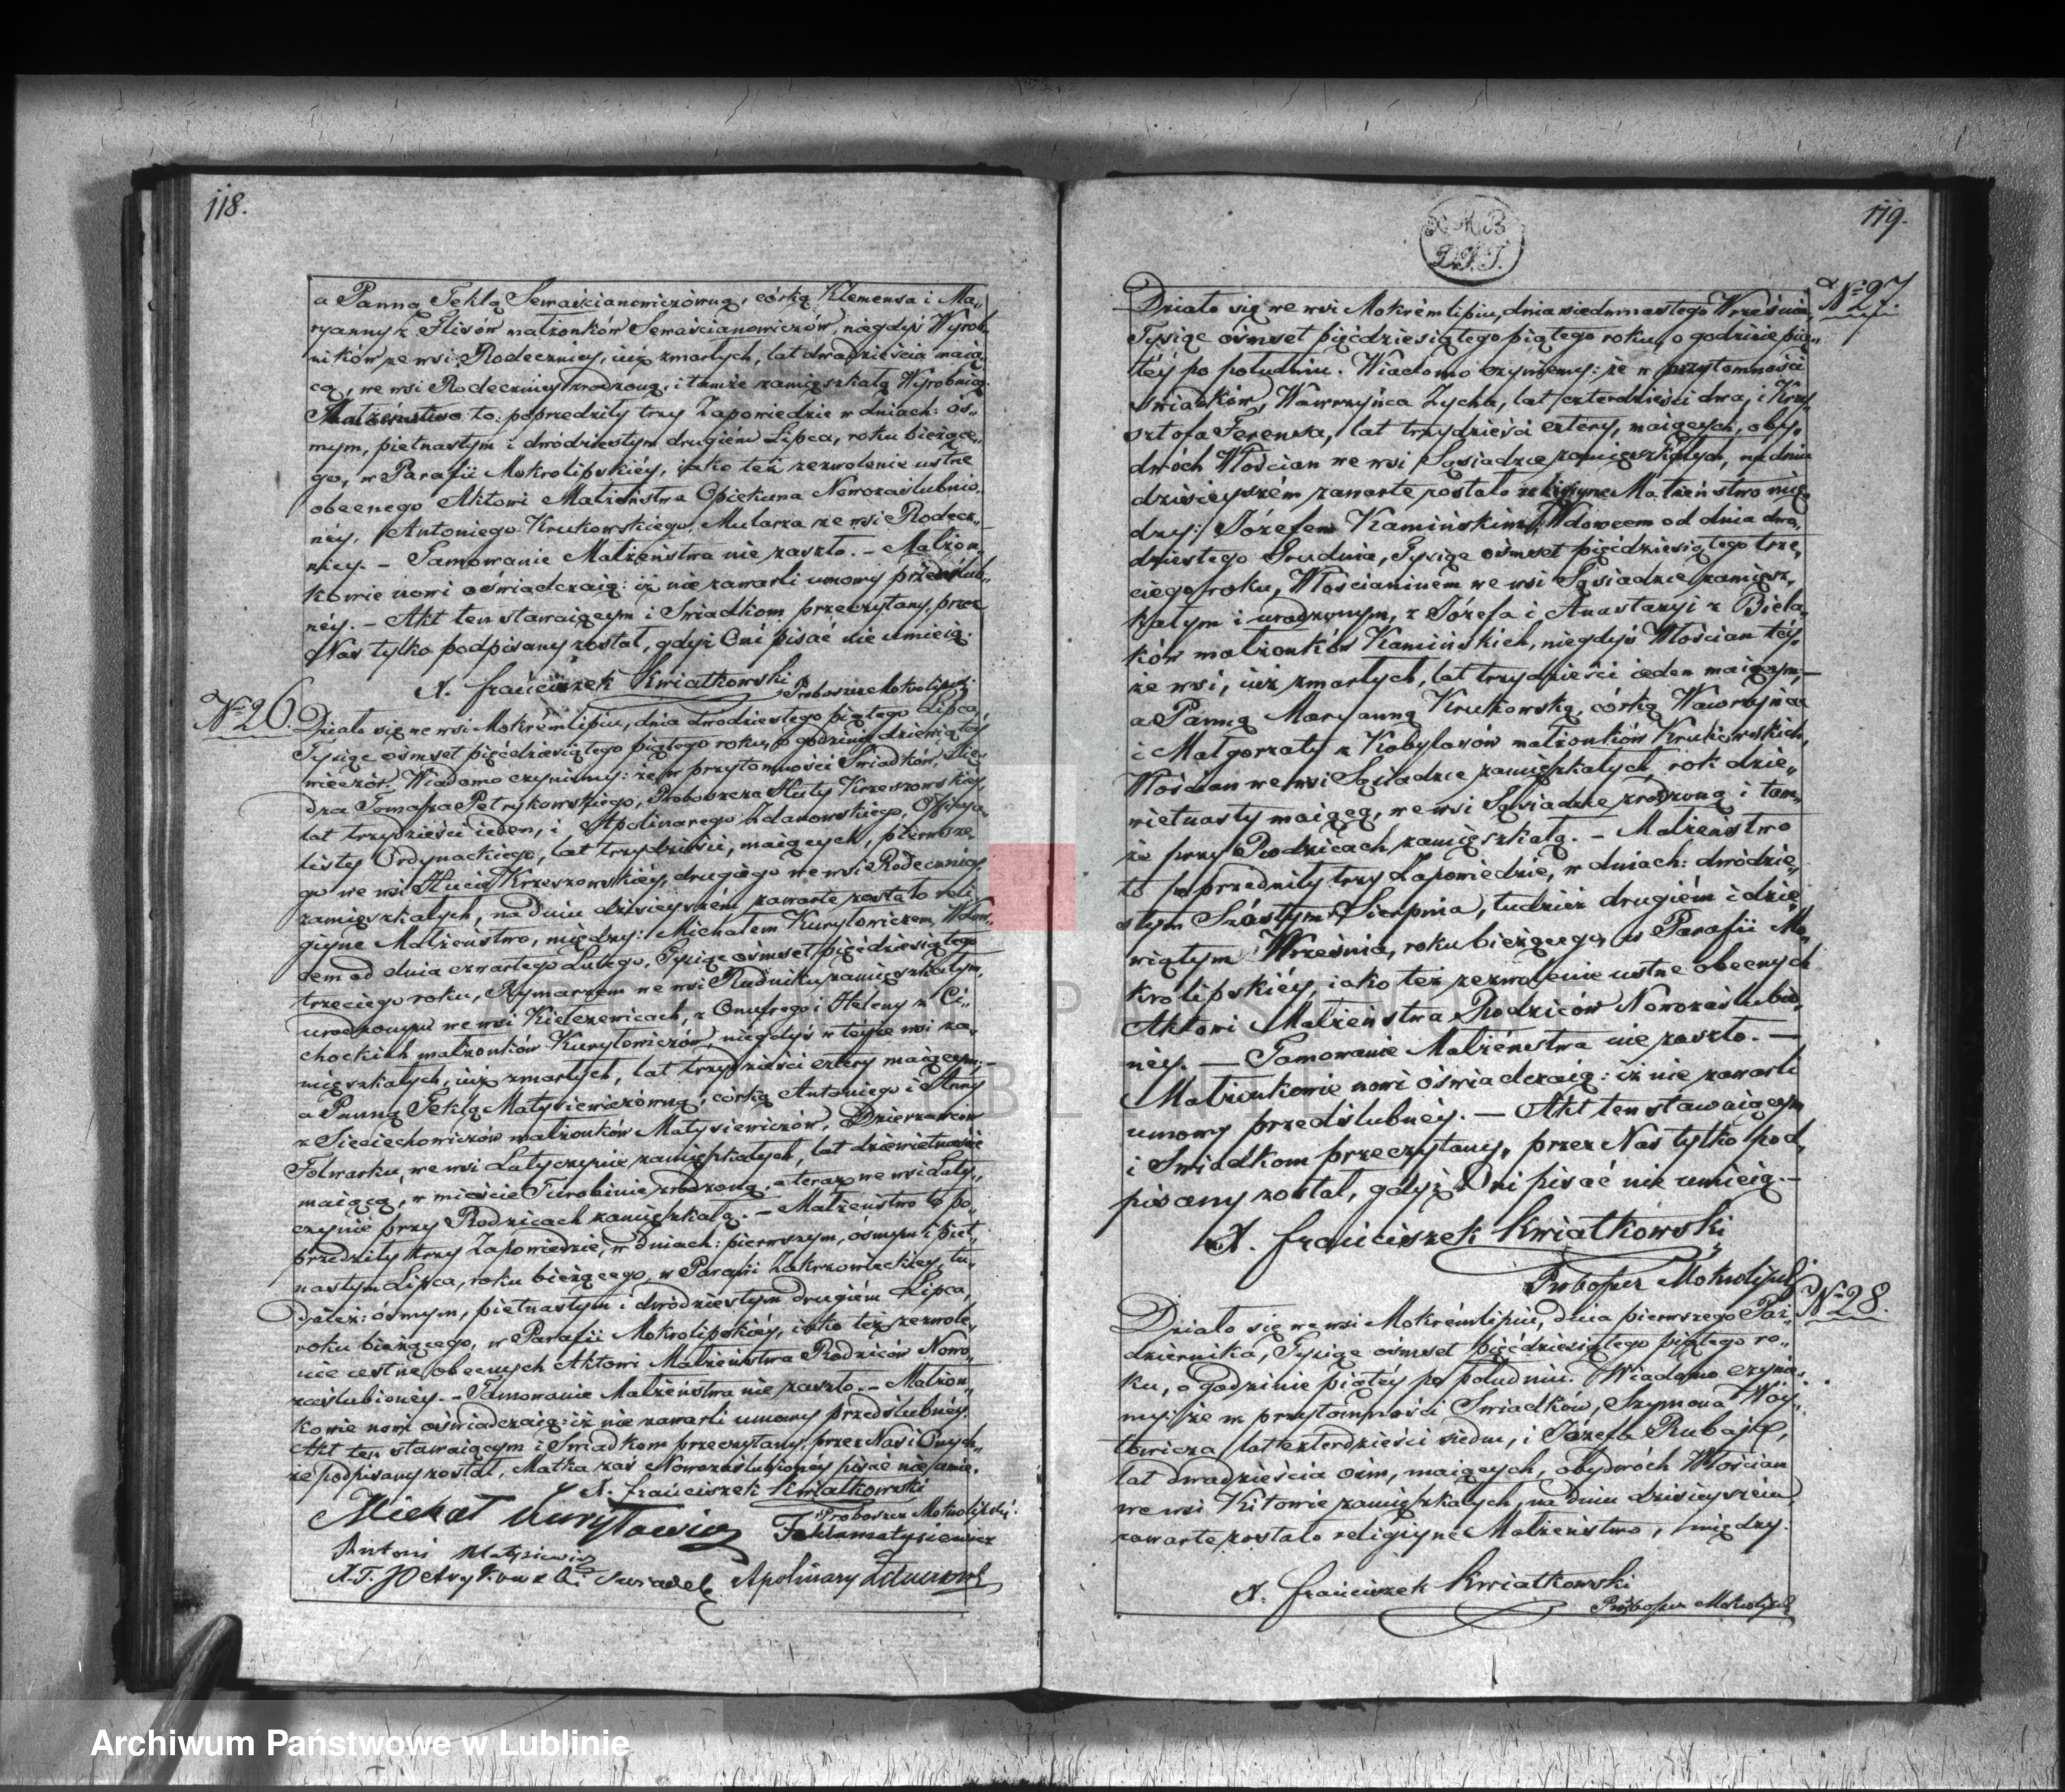 118.
a Panną Teklą Sewaścianowiczówną, córką Klemensa i Ma„
ryanny z Flisów małżonków Sewaścianowiczów, niegdyś Wyrob„
ników ze wsi Rodecznicy, iuż zmarłych, lat dwadzieścia maią„
cą, we wsi Rodecznicy zrodzoną, i tamże zamięszkałą Wyrobnicą.
Małżeństwo to: poprzedziły trzy Zapowiedzie w dniach: ós„
mym, piętnastym i dwódziestym drugiém Lipca, roku bieżące„
go, w Parafii Mokrolipskiéy, iako też zezwolenie ustne
obecnego Aktowi Małżeństwa Opiekuna Nowozaślubio„
néy, Antoniego Krukowskiego, Mularza ze wsi Rodecz„
nicy. – Tamowanie Małżeństwa nie zaszło. – Małżon„
kowie nowi oświadczaią: iż nie zawarli umowy przedślub„
néy. – Akt ten stawaiącym i Swiadkom przeczytany, przez
Nas tylko podpisany został, gdyż Oni pisać nie umieią.
X. Franciszek Kwiatkowski Proboszcz Mokrolipski
N° 26.
Działo się we wsi Mokrémlipiu, dnia dwodziestego piątego Lipca,
Tysiąc ośmset pięćdziesiątego piątego roku, o godzinie dziewiątéy
wieczór. Wiadomo czyniemy: że w przytomności Swiadków, Xię„
dza Tomasza Petrykowskiego, Proboszcza Huty Krzeszowskiéy,
lat trzydzieści ieden, i Apolinarego Zdanowskiego, Officya„
listy Ordynackiego, lat trzydzieści, maiących, pierwsze„
go we wsi Hucie Krzeszowskiéy, drugiego we wsi Rodecznicy
zamięszkałych, na dniu dzisieyszém zawarte zostało reli„
giyne Małżeństwo, między: Michałem Kuryłowiczem, Wdow„
cem od dnia czwartego Lutego, Tysiąc ośmset pięćdziesiątego
trzeciego roku, Rymarzem we wsi Rudniku zamięszkałym,
urodzonym we wsi Kiełczewicach, z Onufrego i Heleny z Ci„
chockich małżonków Kuryłowiczów, niegdyś w teyże wsi za„
mięszkałych, iuż zmarłych, lat trzydzieści cztery maiącym;
a Panną Teklą Matysiewiczówną, córką Antoniego i Anny
z Sieciechowiczów małżonków Matysiewiczów, Dzierżawców
Folwarku, we wsi Latyczynie zamięszkałych, lat dziewietnaście
maiącą, w mieście Turobinie zrodzoną, a teraz we wsi Laty„
czynie przy Rodzicach zamięszkałą. – Małżeństwo to po„
przedziły trzy Zapowiedzie, w dniach: pierwszym, ósmym i pięt„
nastym Lipca, roku bieżącego, w Parafii Zakrzowieckiey, tu„
dzież: ósmym, piętnastym i dwódziestym drugiém Lipca,
roku bieżącego, w Parafii Mokrolipskiéy, iako też zezwole„
nie ustne obecnych Aktowi Małżeństwa Rodziców Nowo„
zaślubionéy. – Tamowanie Małżeństwa nie zaszło. – Małżon„
kowie nowi oświadczaią: iż nie zawarli umowy przedślubnéy.
Akt ten stawaiącym i Swiadkom przeczytany, przez Nas i Onych„
że podpisany został, Matka zaś Nowozaślubionéy pisać nie umie.
X. Franciszek Kwiatkowski
Proboszcz Mokrolipski
Michał Kuryłowicz Tekla Matysiewicz
Antoni Matysiewicz
X. T. Petrykowski Swiadek Apolinary Zdanowski
119.
X. M. B.
D. J. T.
N° 27.
Działo się we wsi Mokrém lipiu, dnia siedmnastego Września,
Tysiąc ośmset pięćdziesiątego piątego roku, o godzinie pią„
téy po południu. Wiadomo czyniemy: że w przytomności
Swiadków, Wawrzyńca Zycha, lat czterdzieści dwa, i Krzy„
sztofa Ferensa, lat trzydzieści cztery, maiących, oby„
dwóch Włościan we wsi Sąsiadce zamięszkałych, na dniu
dzisieyszém zawarte zostało religiyne Małżeństwo mię„
dzy: Józefem Kamińskim, Wdowcem od dnia dwó„
dziestego Grudnia, Tysiąc ośmset pięćdziesiątego trze„
ciego roku, Włościaninem we wsi Sąsiadce zamięsz„
kałym i urodzonym, z Józefa i Anastazyi z Biela„
ków małżonków Kamińskich, niegdyś Włościan téy„
że wsi, iuż zmarłych, lat trzydzieści ieden maiącym, –
a Panną Maryanną Krukowską, córką Wawrzyńca
i Małgorzaty z Kobylasów małżonków Krukowskich,
Włościan we wsi Sąsiadce zamięszkałych, rok dzie„
więtnasty maiącą, we wsi Sąsiadce zrodzoną i tam„
że przy Rodzicach zamięszkałą. – Małżeństwo
to poprzedziły trzy Zapowiedzie, w dniach: dwódzie„
stym Szóstym Sierpnia, tudzież drugiém i dzie„
wiątym Września, roku bieżącego, w Parafii Mo„
krolipskiéy, iako też zezwolenie ustne obecnych
Aktowi Małżeństwa Rodziców Nowozaślubio„
néy. — Tamowanie Małżeństwa nie zaszło. —
Małżonkowie nowi oświadczaią: iż nie zawarli
umowy przedślubnéy. — Akt ten stawaiącym
i Swiadkom przeczytany, przez Nas tylko pod„
pisany został, gdyż Oni pisać nie umieią. –
X. Franciszek Kwiatkowski
Proboszcz Mokrolipski
N° 28.
Działo się we wsi Mokrémlipiu, dnia pierwszego Paź„
dziernika, Tysiąc ośmset pięćdziesiątego piątego ro„
ku, o godzinie piątéy po południu. Wiadomo czynie„
my: że w przytomności Swiadków, Szymona Wóy„
towicza, lat czterdzieści siedm, i Józefa Rubaja,
lat dwadzieścia ośm, maiących, obydwóch Włościan
we wsi Kitowie zamięszkałych, na dniu dzisieyszém
zawarte zostało religiyne Małżeństwo, między.
X. Franciszek Kwiatkowski
Proboszcz Mokrolipski
ARCHIWUM PAŃSTWOWE
W LUBLINIE
Archiwum Państwowe w Lublinie